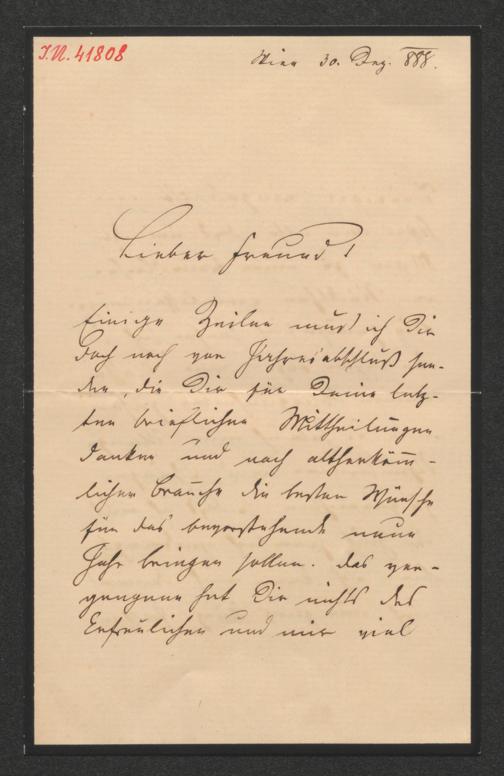 I.N. 41808
Wien 30. Dez. 888.
Lieber Freund!
Einige Zeilen muß ich Dir
doch noch vor Jahresabschluß sen-
den, die Dir für Deine letz-
ten brieflichen Mittheilungen
danken und nach altherköm̄-
lichem Brauche die besten Wünsche
für das bevorstehende neue
Jahr bringen sollen. Das ver-
gangene hat Dir nichts des
Erfreulichen und mir viel